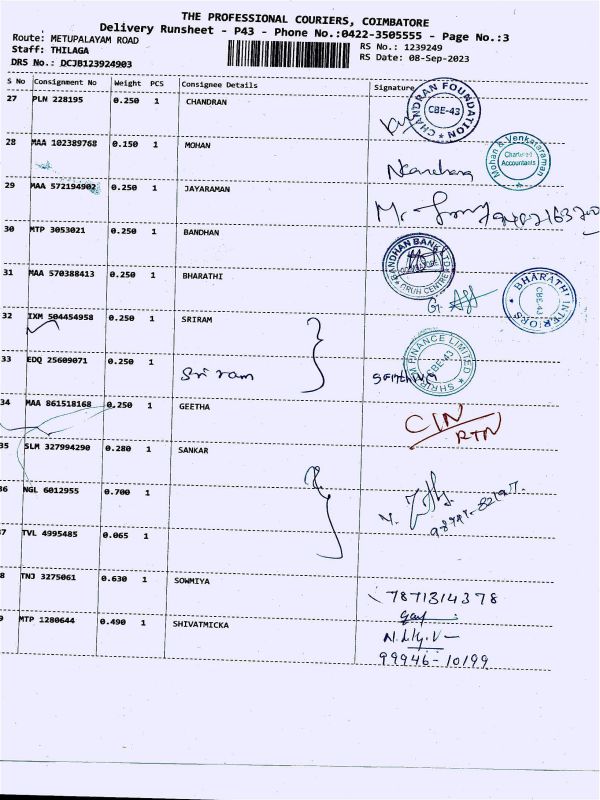 THE PROFESSIONAL COURIERS, COIMBATORE
Delivery Runsheet - P43 - Phone No.:0422-3505555 - Page No.:3
Route: METUPALAYAM ROAD
RS No.: 1239249
Staff: THILAGA
RS Date: 08-Sep-2023
DRS No.: DCJB123924903
S No Consignment No Weight PCS Consignee Details Signature
27 PLN 228195 0.250 1 CHANDRAN
CHANDRAN FOUNDATION
CBE-43
28 MAA 102389768 0.150 1 MOHAN
Mohan & Venkataraman
Chartered
Accountants
29 MAA 572194902 0.250 1 JAYARAMAN
30 MTP 3053021 0.250 1 BANDHAN
31 MAA 570388413 0.250 1 BHARATHI
BHARATHI INTERIORS
CBE-43
32 IXM 504454958 0.250 1 SRIRAM
33 EDQ 25609071 0.250 1
Sri ram
CBE-43
34 MAA 861518168 0.250 1 GEETHA
C/N
RTN
35 SLM 327994290 0.280 1 SANKAR
36 NGL 6012955 0.700 1
37 TVL 4995485 0.065 1
38 TNJ 3275061 0.630 1 SOWMIYA
7871314378
39 MTP 1280644 0.490 1 SHIVATMICKA
99946-10199